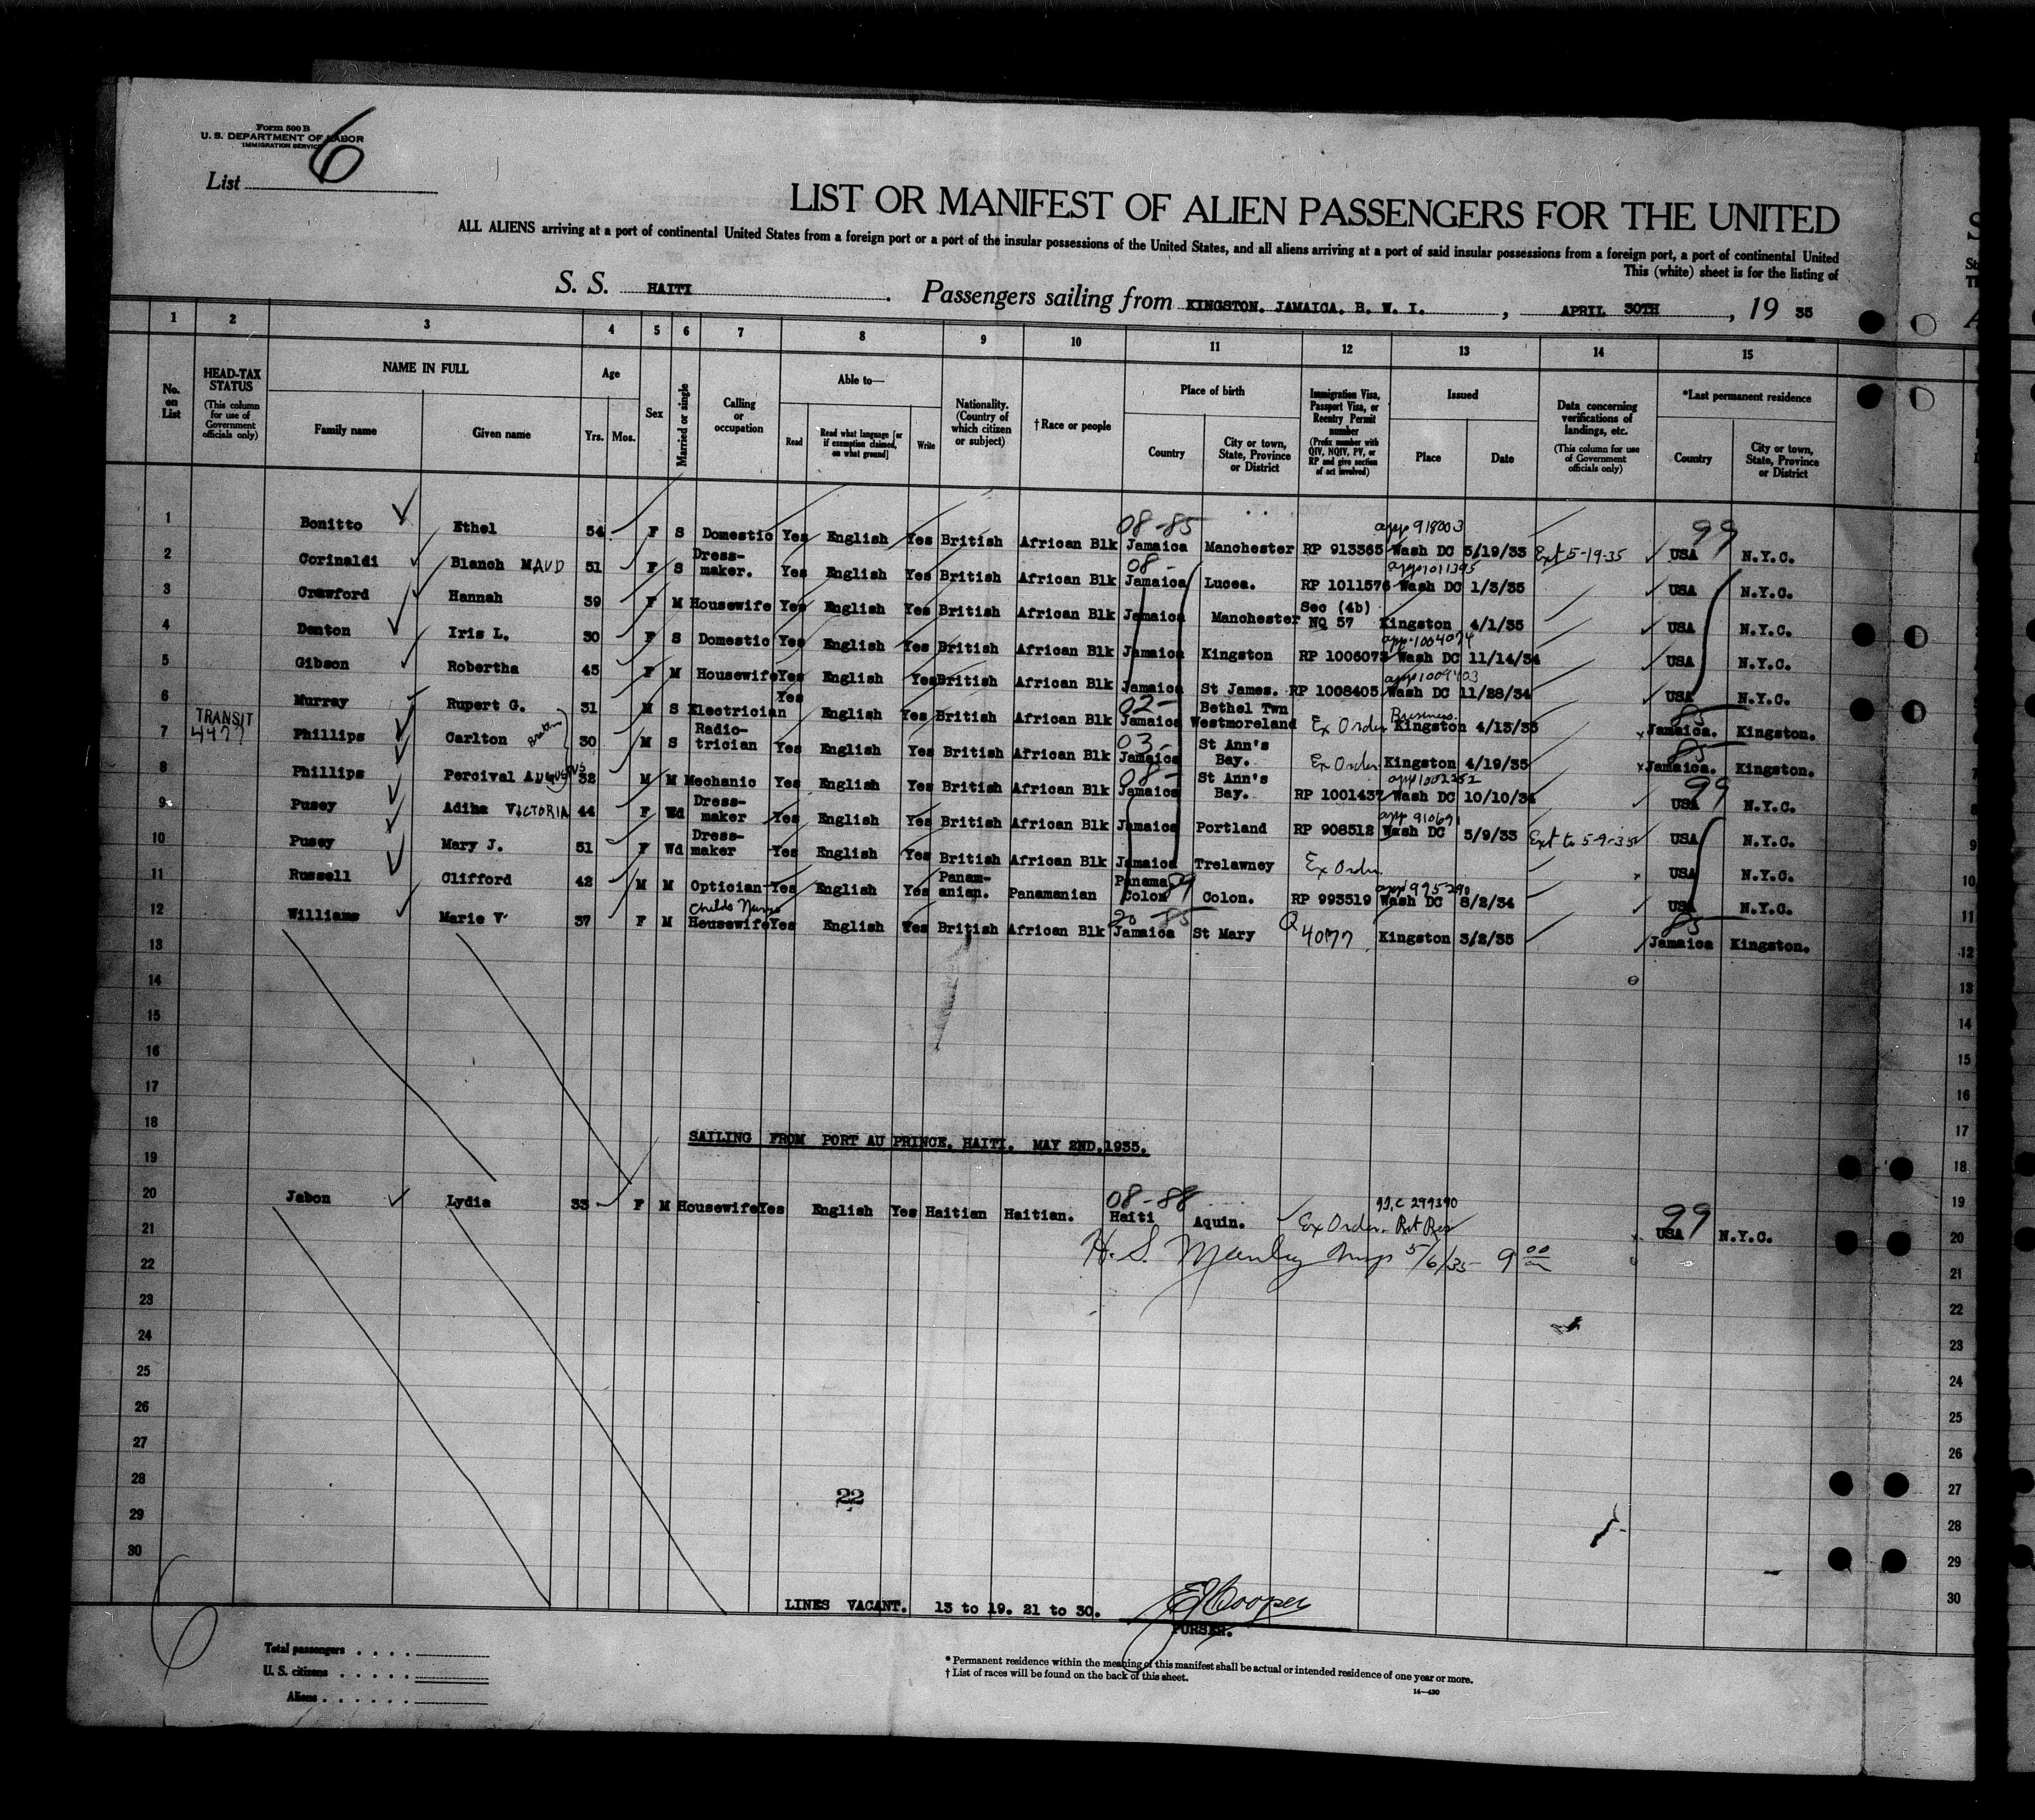 Form 500 B
U. S. DEPARTMENT OF LABOR
IMMIGRATION SERVICE
List 6
LIST OR MANIFEST OF ALIEN PASSENGERS FOR THE UNITED
ALL ALIENS arriving at a port of continental United States from a foreign port or a port of the insular possessions of the United States, and all aliens arriving at a port of said insular possessions from a foreign port, a port of continental United
This (white) sheet is for the listing of
S. S. HAITI. Passengers sailing from KINGSTON. JAMAICA. B. W. I., APRIL 30TH, 19 35
1 2 3 4 5 6 7 8 9 10 11 12 13 14 15
No. on List
HEAD-TAX STATUS (This column for use of Government officials only)
NAME IN FULL
Family name Given name
Age
Yrs. Mos.
Sex
Married or single
Calling or occupation
Able to—
Read Read what language [or if exemption claimed, on what ground] Write
Nationality. (Country of which citizen or subject)
†Race or people
Place of birth
Country City or town, State, Province or District
Immigration Visa, Passport Visa, or Reentry Permit number (Prefix number with QIV, NQIV, PV, or RP and give section of act involved)
Issued
Place Date
Data concerning verifications of landings, etc. (This column for use of Government officials only)
*Last permanent residence
Country City or town, State, Province or District
08-85 app 918003 99
1 Bonitto Ethel 54 F S Domestic Yes English Yes British African Blk Jamaica Manchester RP 913365 Wash DC 5/19/33 Ext 5-19-35 USA N.Y.C.
08- app 1011395
2 Corinaldi Blanch MAUD 51 F S Dress-maker. Yes English Yes British African Blk Jamaica Lucea. RP 1011576 Wash DC 1/3/35 USA N.Y.C.
3 Crawford Hannah 39 F M Housewife Yes English Yes British African Blk Jamaica Manchester Sec (4b) NQ 57 Kingston 4/1/35 USA N.Y.C.
app 1004074
4 Denton Iris L. 30 F S Domestic Yes English Yes British African Blk Jamaica Kingston RP 1006073 Wash DC 11/14/34 USA N.Y.C.
app 1009403
5 Gibson Robertha 45 F M Housewife Yes English Yes British African Blk Jamaica St James. RP 1008405 Wash DC 11/28/34 USA N.Y.C.
02- Business. 85
6 Murray Rupert G. 31 M S Electrician Yes English Yes British African Blk Jamaica Bethel Twn Westmoreland Ex Order Kingston 4/13/35 Jamaica. Kingston.
TRANSIT
03- 85
7 Phillips Carlton 30 M S Radio-trician Yes English Yes British African Blk Jamaica St Ann's Bay. Ex Order Kingston 4/19/35 Jamaica. Kingston.
08- app 1002252 99
8 Phillips Percival AUGUSTUS 32 M M Mechanic Yes English Yes British African Blk Jamaica St Ann's Bay. RP 1001437 Wash DC 10/10/34 USA N.Y.C.
app 910691
9 Pusey Adina VICTORIA 44 F Wd Dress-maker Yes English Yes British African Blk Jamaica Portland RP 908512 Wash DC 5/9/33 Ext to 5-9-35 USA N.Y.C.
10 Pusey Mary J. 51 F Wd Dress-maker Yes English Yes British African Blk Jamaica Trelawney Ex Order. USA N.Y.C.
app 995290
11 Russell Clifford 42 M M Optician Yes English Yes Panam-anian. Panamanian Panama Colon 89 Colon. RP 993519 Wash DC 8/2/34 USA N.Y.C.
Childs Nurse 20 85 85
12 Williams Marie V 37 F M Housewife Yes English Yes British African Blk Jamaica St Mary Q 4077 Kingston 3/2/35 Jamaica Kingston.
13
14
15
16
17
18 SAILING FROM PORT AU PRINCE. HAITI. MAY 2ND, 1935.
19
08-88 299390 99
20 Jabon Lydia 33 F M Housewife Yes English Yes Haitian Haitian. Haiti Aquin. Ex Order. Ret Res USA N.Y.C.
21 H. S. Manley 5/6/35 9 00
22
23
24
25
26
27
28
22
29
30
LINES VACANT. 13 to 19. 21 to 30. EJ Cooper
PURSER.
Total passengers
U. S. citizens
Aliens
* Permanent residence within the meaning of this manifest shall be actual or intended residence of one year or more.
† List of races will be found on the back of this sheet.
14—430